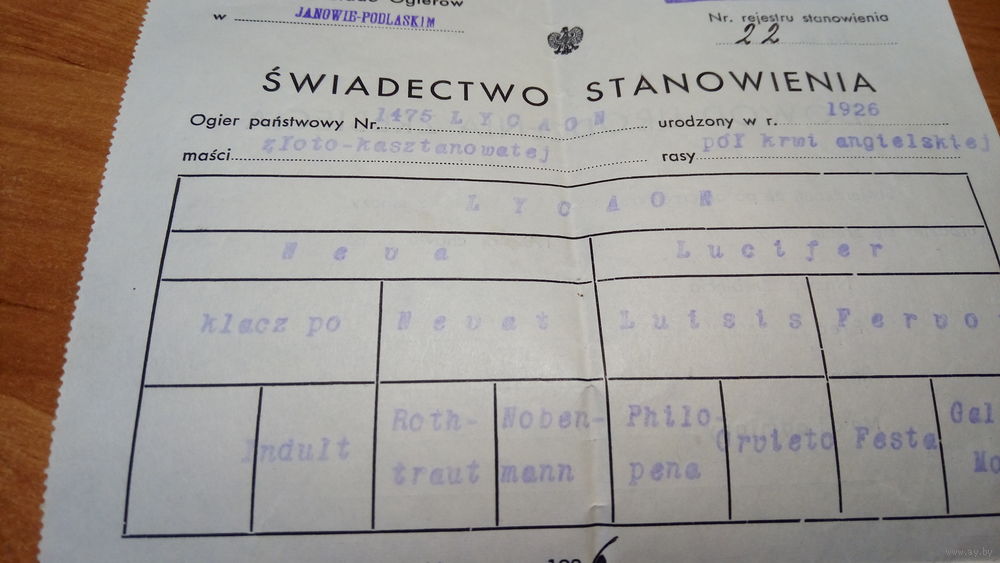 Ogierów
w JANOWIE-PODLASKIM
Nr. rejestru stanowienia
22
ŚWIADECTWO STANOWIENIA
Ogier państwowy Nr. 1475 LYCAON urodzony w r. 1926
maści złoto-kasztanowatej rasy pół krwi angielskiej
LYCAON
Neva Lucifer
klacz po Nevat Luisis Fervo
Indult Roth-traut Noben-mann Philo-pena Orvieto Festa Gal
Mo
www.ay.by